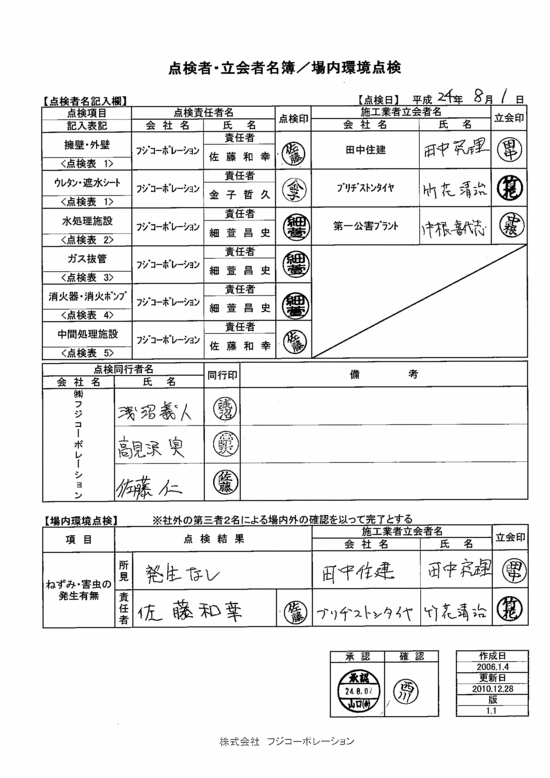 点検者・立会者名簿／場内環境点検
【点検者名記入欄】 【点検日】 平成 24年 8月 1日
点検項目 点検責任者名 点検印 施工業者立会者名 立会印
記入表記 会社名 氏名 会社名 氏名
擁壁・外壁 フジコーポレーション 責任者 佐藤和幸 佐藤 田中住建 田中 田中
<点検表 1>
ウレタン・遮水シート フジコーポレーション 責任者 金子哲久 金子 ブリヂストンタイヤ 竹花清治 竹花
<点検表 1>
水処理施設 フジコーポレーション 責任者 細萱昌史 細萱 第一公害プラント 中根 中根
<点検表 2>
ガス抜管 フジコーポレーション 責任者 細萱昌史 細萱
<点検表 3>
消火器・消火ポンプ フジコーポレーション 責任者 細萱昌史 細萱
<点検表 4>
中間処理施設 フジコーポレーション 責任者 佐藤和幸 佐藤
<点検表 5>
点検同行者名 同行印 備考
会社名 氏名
㈱フジコーポレーション
浅沼義人 浅沼
高見沢 実 高見沢
佐藤 仁 佐藤
【場内環境点検】 ※社外の第三者2名による場内外の確認を以って完了とする
項目 点検結果 施工業者立会者名 立会印
会社名 氏名
ねずみ・害虫の発生有無 所見 発生なし 田中住建 田中 田中
責任者 佐藤和幸 佐藤 ブリヂストンタイヤ 竹花清治 竹花
承認 確認 作成日
承認 24.8.02 山口 西川 2006.1.4
更新日
2010.12.28
版
1.1
株式会社 フジコーポレーション